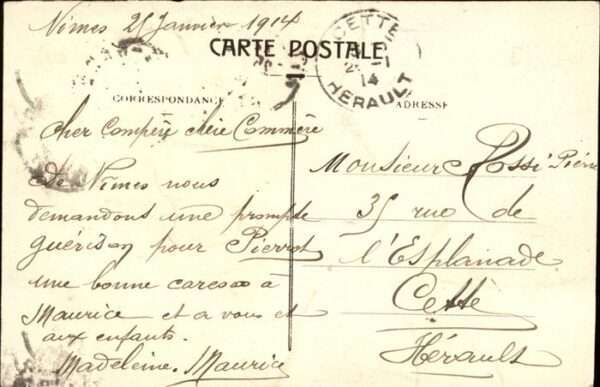 Nîmes 25 Janvier 1914
CARTE POSTALE
CETTE
14
HERAULT
CORRESPONDANCE
ADRESSE
Cher Compère Chère Commère
De Nîmes nous
demandons une prompte
guérison pour Pierrot
une bonne caresse à
Maurice et a vous et
aux enfants.
Madeleine. Maurice
Monsieur Rossi Pierre
35 rue de
l'Esplanade
Cette
Hérault